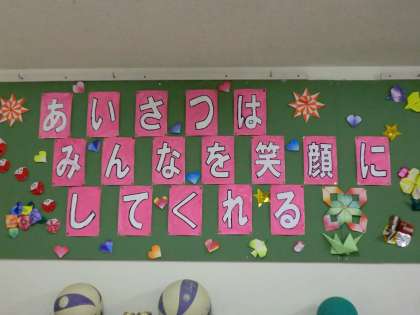 あいさつは
みんなを笑顔に
してくれる